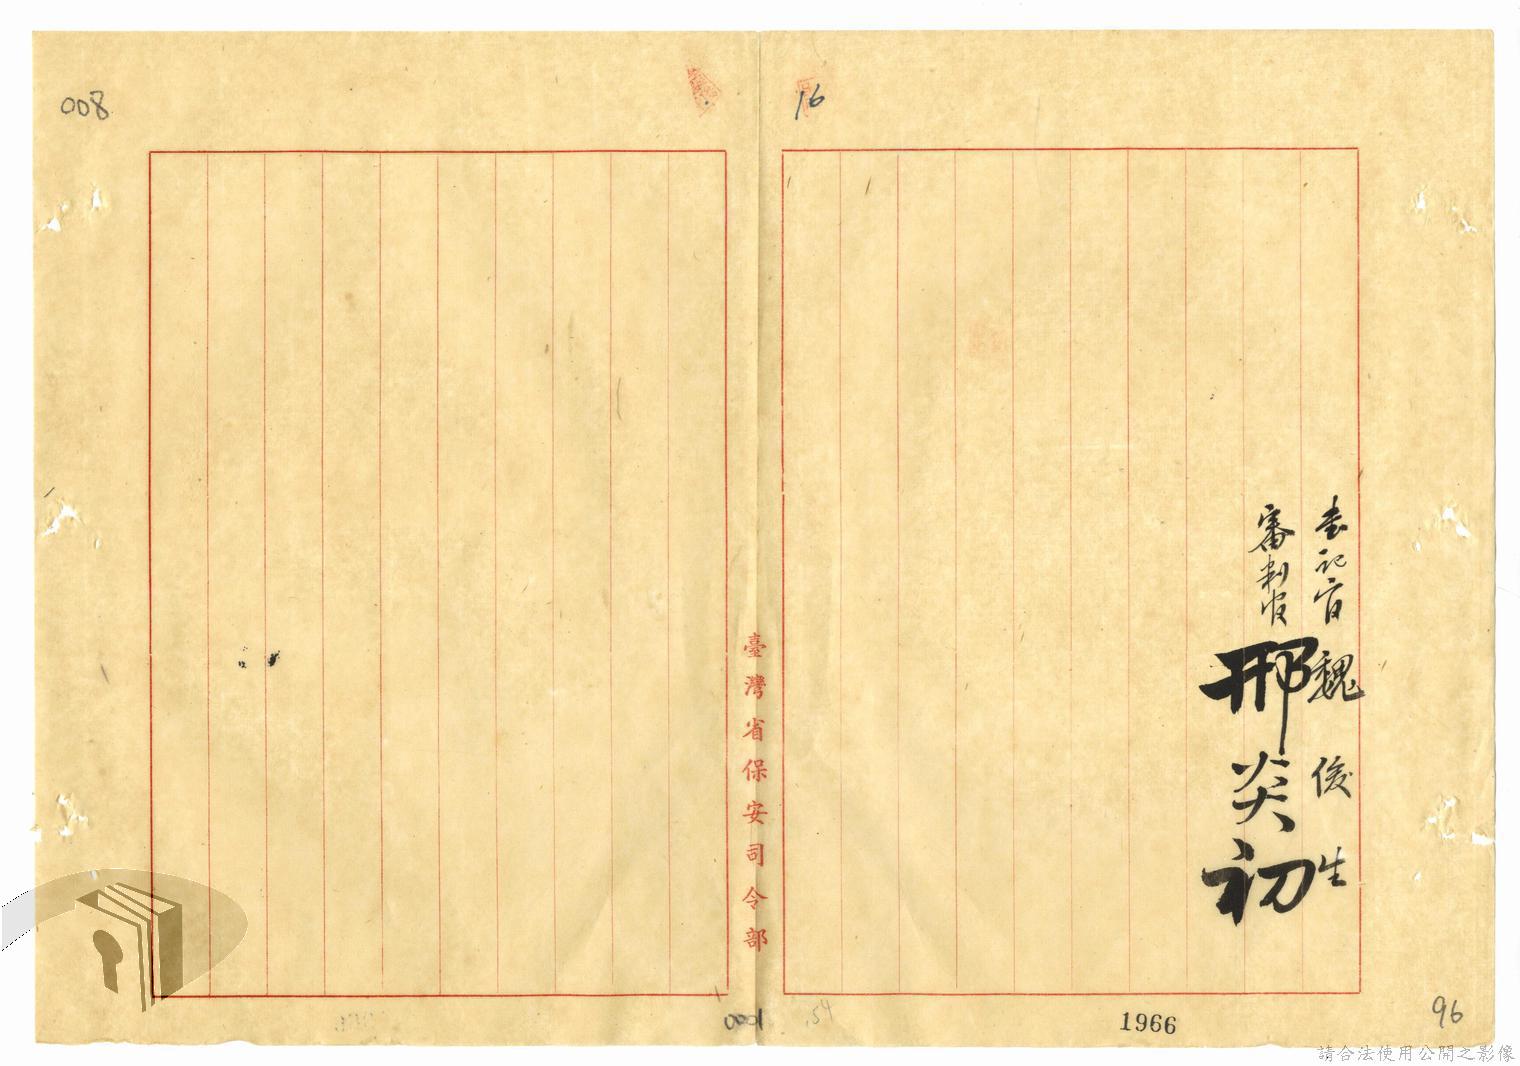 008
16
書記官 魏俊生
審判官 邢炎初
臺灣省保安司令部
0001
54
1966
96
請合法使用公開之影像